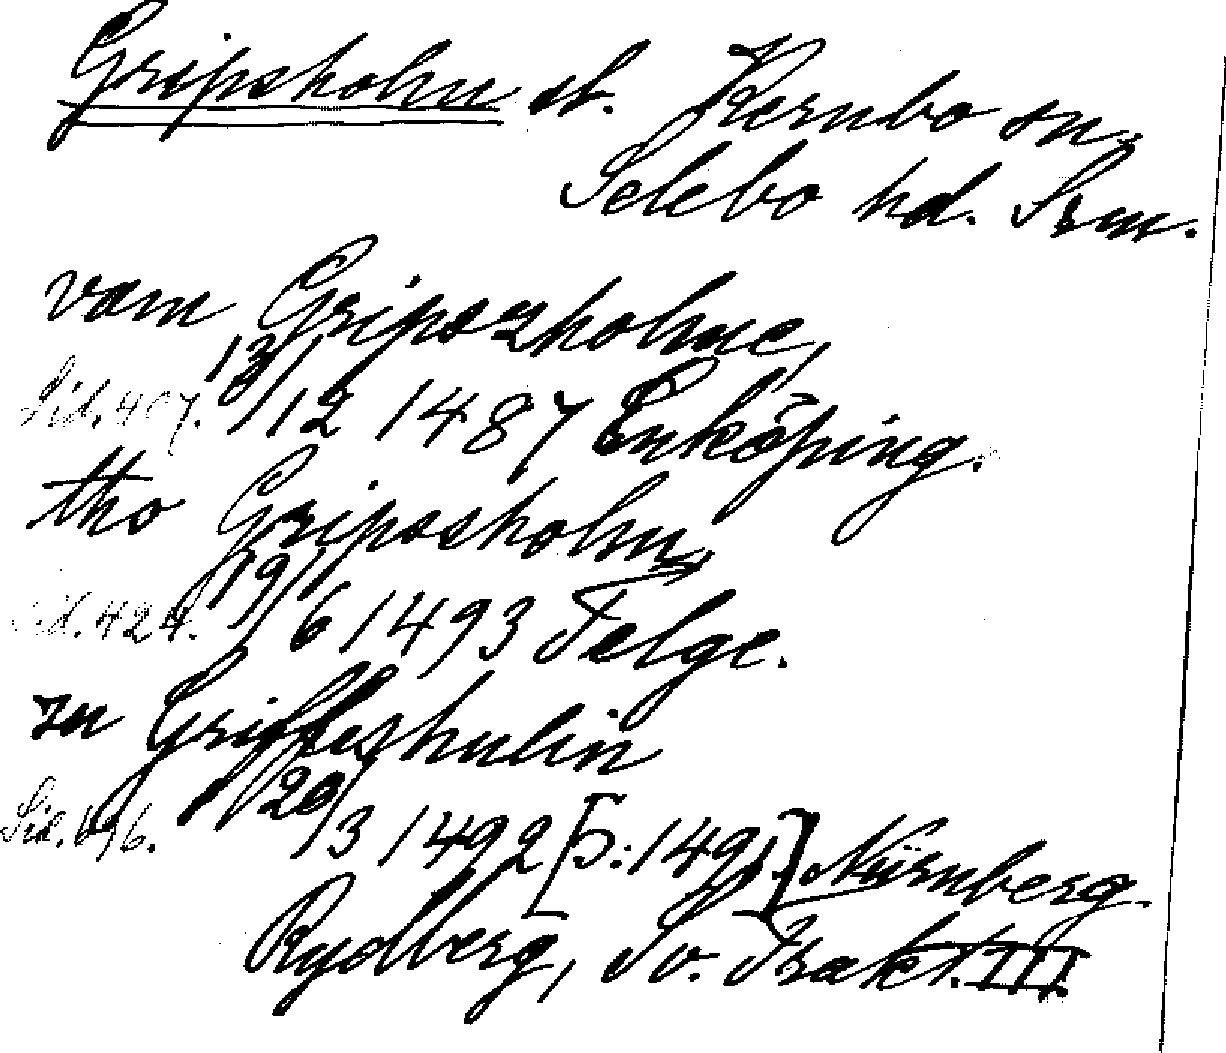 Gripsholm sl. Kernbo sn,
Selebo hd. Srm.
vam Gripszholme,
Sid. 407. 13/12 1487 Enköping.
tho Gripssholm,
Sid. 424. 19/6 1493 Telge.
zu Griffeshulin
Sid. 696. 20/3 1492 [ɔ: 1491] Nürnberg.
Rydberg, Sv. Trakt. III.